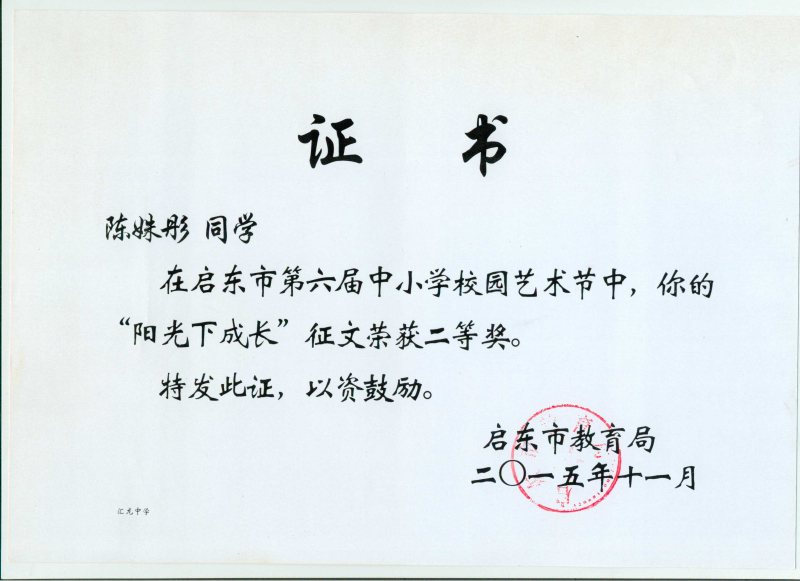 证 书
陈姝彤 同学
在启东市第六届中小学校园艺术节中，你的
“阳光下成长”征文荣获二等奖。
特发此证，以资鼓励。
启东市教育局
二〇一五年十一月
汇龙中学